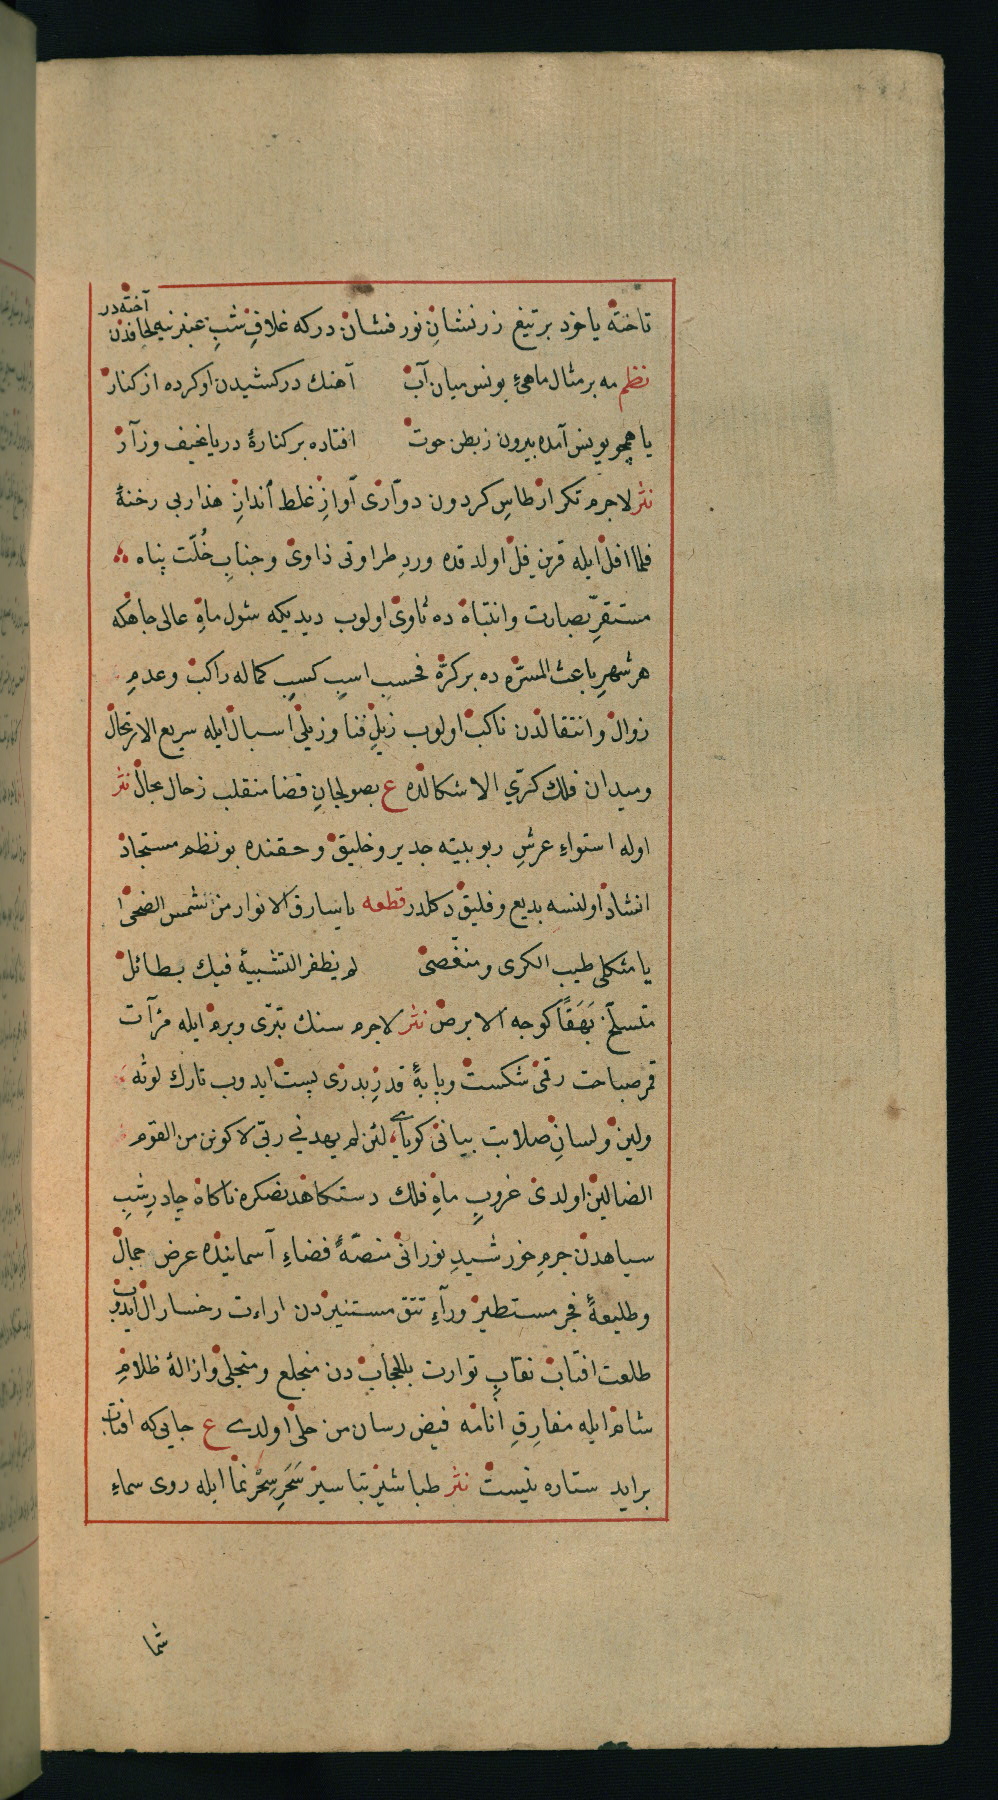 آخته در
تاخته یاخود بر تیغ زرنشانِ نور فشان در که غلافِ شبِ عنبرینه لحافدن
نظم مه بر مثال ماهیٔ یونس میان آب آهنك درکشیدن او کرده از کنار
یا همچو یونس آمده بیرون ز بطن حوت افتاده بر کنارهٔ دریا نحیف وزار
نثر لاجرم تکرار طاسِ کردون دوّاری آوازِ غلط اندازِ هذا ربی رخنهٔ
فلما افل ایله قرین فلّ اولدقده وردِ طراوتی ذاوی وجنابِ خُلّت پناه
مستقرِّ بصارت وانتباه ده ثاوی اولوب دیدیکه شول ماهِ عالی جاهکه
هر شهرِ باعث المسرّه ده بر کرّه فحسب اسبِ کسبِ کماله راکب وعدمِ
زوال وانتقالدن ناکب اولوب ذیلِ فنا وزیلی اسبال ایله سریع الارتحال
ومیدان فلك کرّي الاشکالده ع بصولجانِ قضا منقلب ز حال بحال نثر
اوله استواءِ عرشِ ربوبیته جدیر وخلیق وحقنده بو نظم مستجاد
انشاد اولنسه بدیع وفلیق دکلدر قطعه یا سارق الانوار من شمس الضحی
یا مثکلی طیب الکری ومنغّصی لم یظفر التشبیهٔ فیك بطائل
متسلّخ بَهَقًا کوجه الابرص نثر لاجرم سنك تبرّی وبرم ایله مرآت
قمر صباحت رقمی شکست وپایهٔ قدرِ بدری پست ایدوب تارك لوثه
ولین ولسانِ صلابت بیانی کویای لئن لم یهدنی ربّی لاکونن من القوم
الضالین اولدی غروبِ ماهِ فلك دستکاهدنصکره ناکاه چادرِ شبِ
سیاهدن جرمِ خورشیدِ نورانی منصّهٔ فضاءِ آسمانیده عرض جمال
وطلیعهٔ فجر مستطیر ورآءِ تتق مستنیردن اراءت رخسار ال ایدوب
طلعت افتاب نقابِ توارت بالحجاب دن منجلع ومنجلی وازالهٔ ظلامِ
شام ایله مفارقِ انامه فیض رسان من خلی اولدی ع جایی که افتاب
براید ستاره نیست نثر طباشیر تباسیر سَحَرِ سِحْر نما ایله روی سماءِ
شما